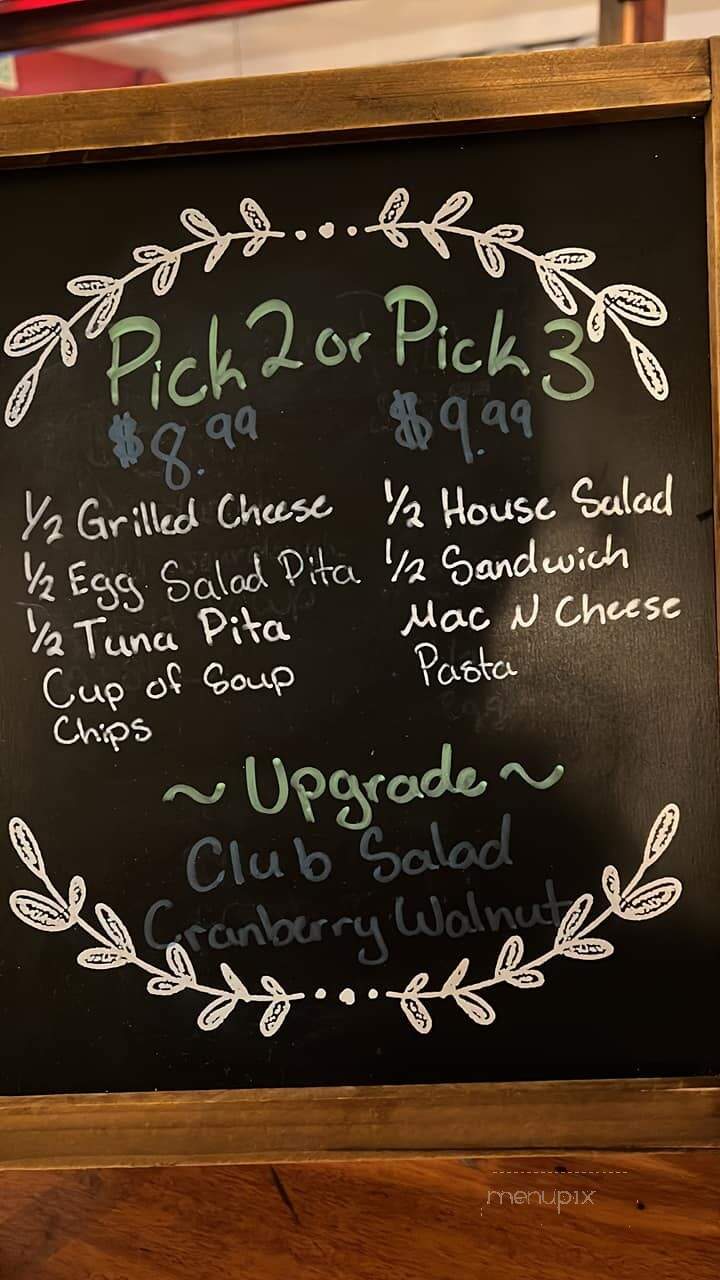 Pick 2 or Pick 3
$8.99 $9.99
1/2 Grilled Cheese
1/2 Egg Salad Pita
1/2 Tuna Pita
Cup of Soup
Chips
1/2 House Salad
1/2 Sandwich
Mac N Cheese
Pasta
~ Upgrade ~
Club Salad
Cranberry Walnut
menupix